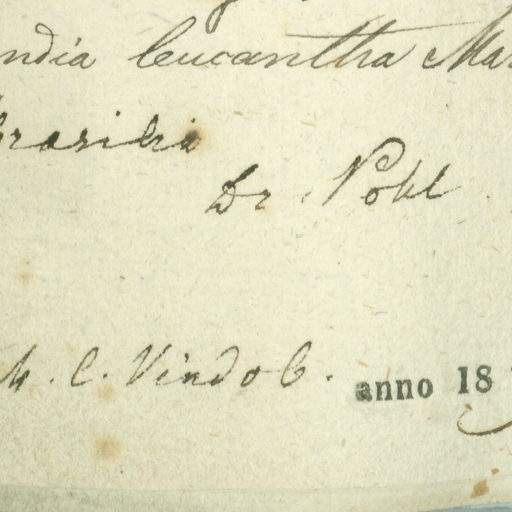 ndia leucantha Mar
Brasilia
Dr. Pohl
M. C. Vindob.
anno 18